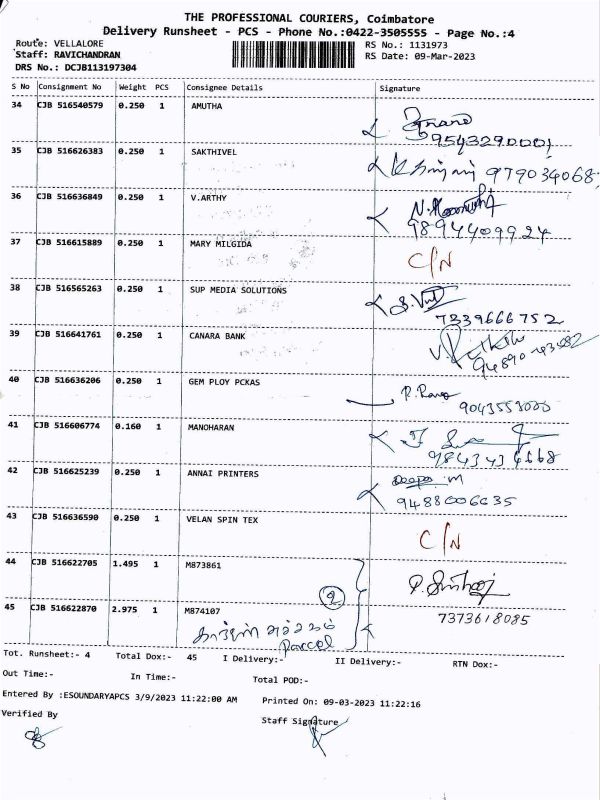 THE PROFESSIONAL COURIERS, Coimbatore
Delivery Runsheet - PCS - Phone No.:0422-3505555 - Page No.:4
Route: VELLALORE
RS No.: 1131973
Staff: RAVICHANDRAN
RS Date: 09-Mar-2023
DRS No.: DCJB113197304
S No Consignment No Weight PCS Consignee Details Signature
34 CJB 516540579 0.250 1 AMUTHA
35 CJB 516626383 0.250 1 SAKTHIVEL
979034068
36 CJB 516636849 0.250 1 V.ARTHY
9894409924
37 CJB 516615889 0.250 1 MARY MILGIDA C/N
38 CJB 516565263 0.250 1 SUP MEDIA SOLUTIONS
7339666752
39 CJB 516641761 0.250 1 CANARA BANK
40 CJB 516636206 0.250 1 GEM PLOY PCKAS
41 CJB 516606774 0.160 1 MANOHARAN
42 CJB 516625239 0.250 1 ANNAI PRINTERS Deepa M
9488006635
43 CJB 516636590 0.250 1 VELAN SPIN TEX C/N
44 CJB 516622705 1.495 1 M873861
2
45 CJB 516622870 2.975 1 M874107 7373618085
Parcel
Tot. Runsheet:- 4 Total Dox:- 45 I Delivery:- II Delivery:- RTN Dox:-
Out Time:- In Time:- Total POD:-
Entered By :ESOUNDARYAPCS 3/9/2023 11:22:00 AM Printed On: 09-03-2023 11:22:16
Verified By Staff Signature